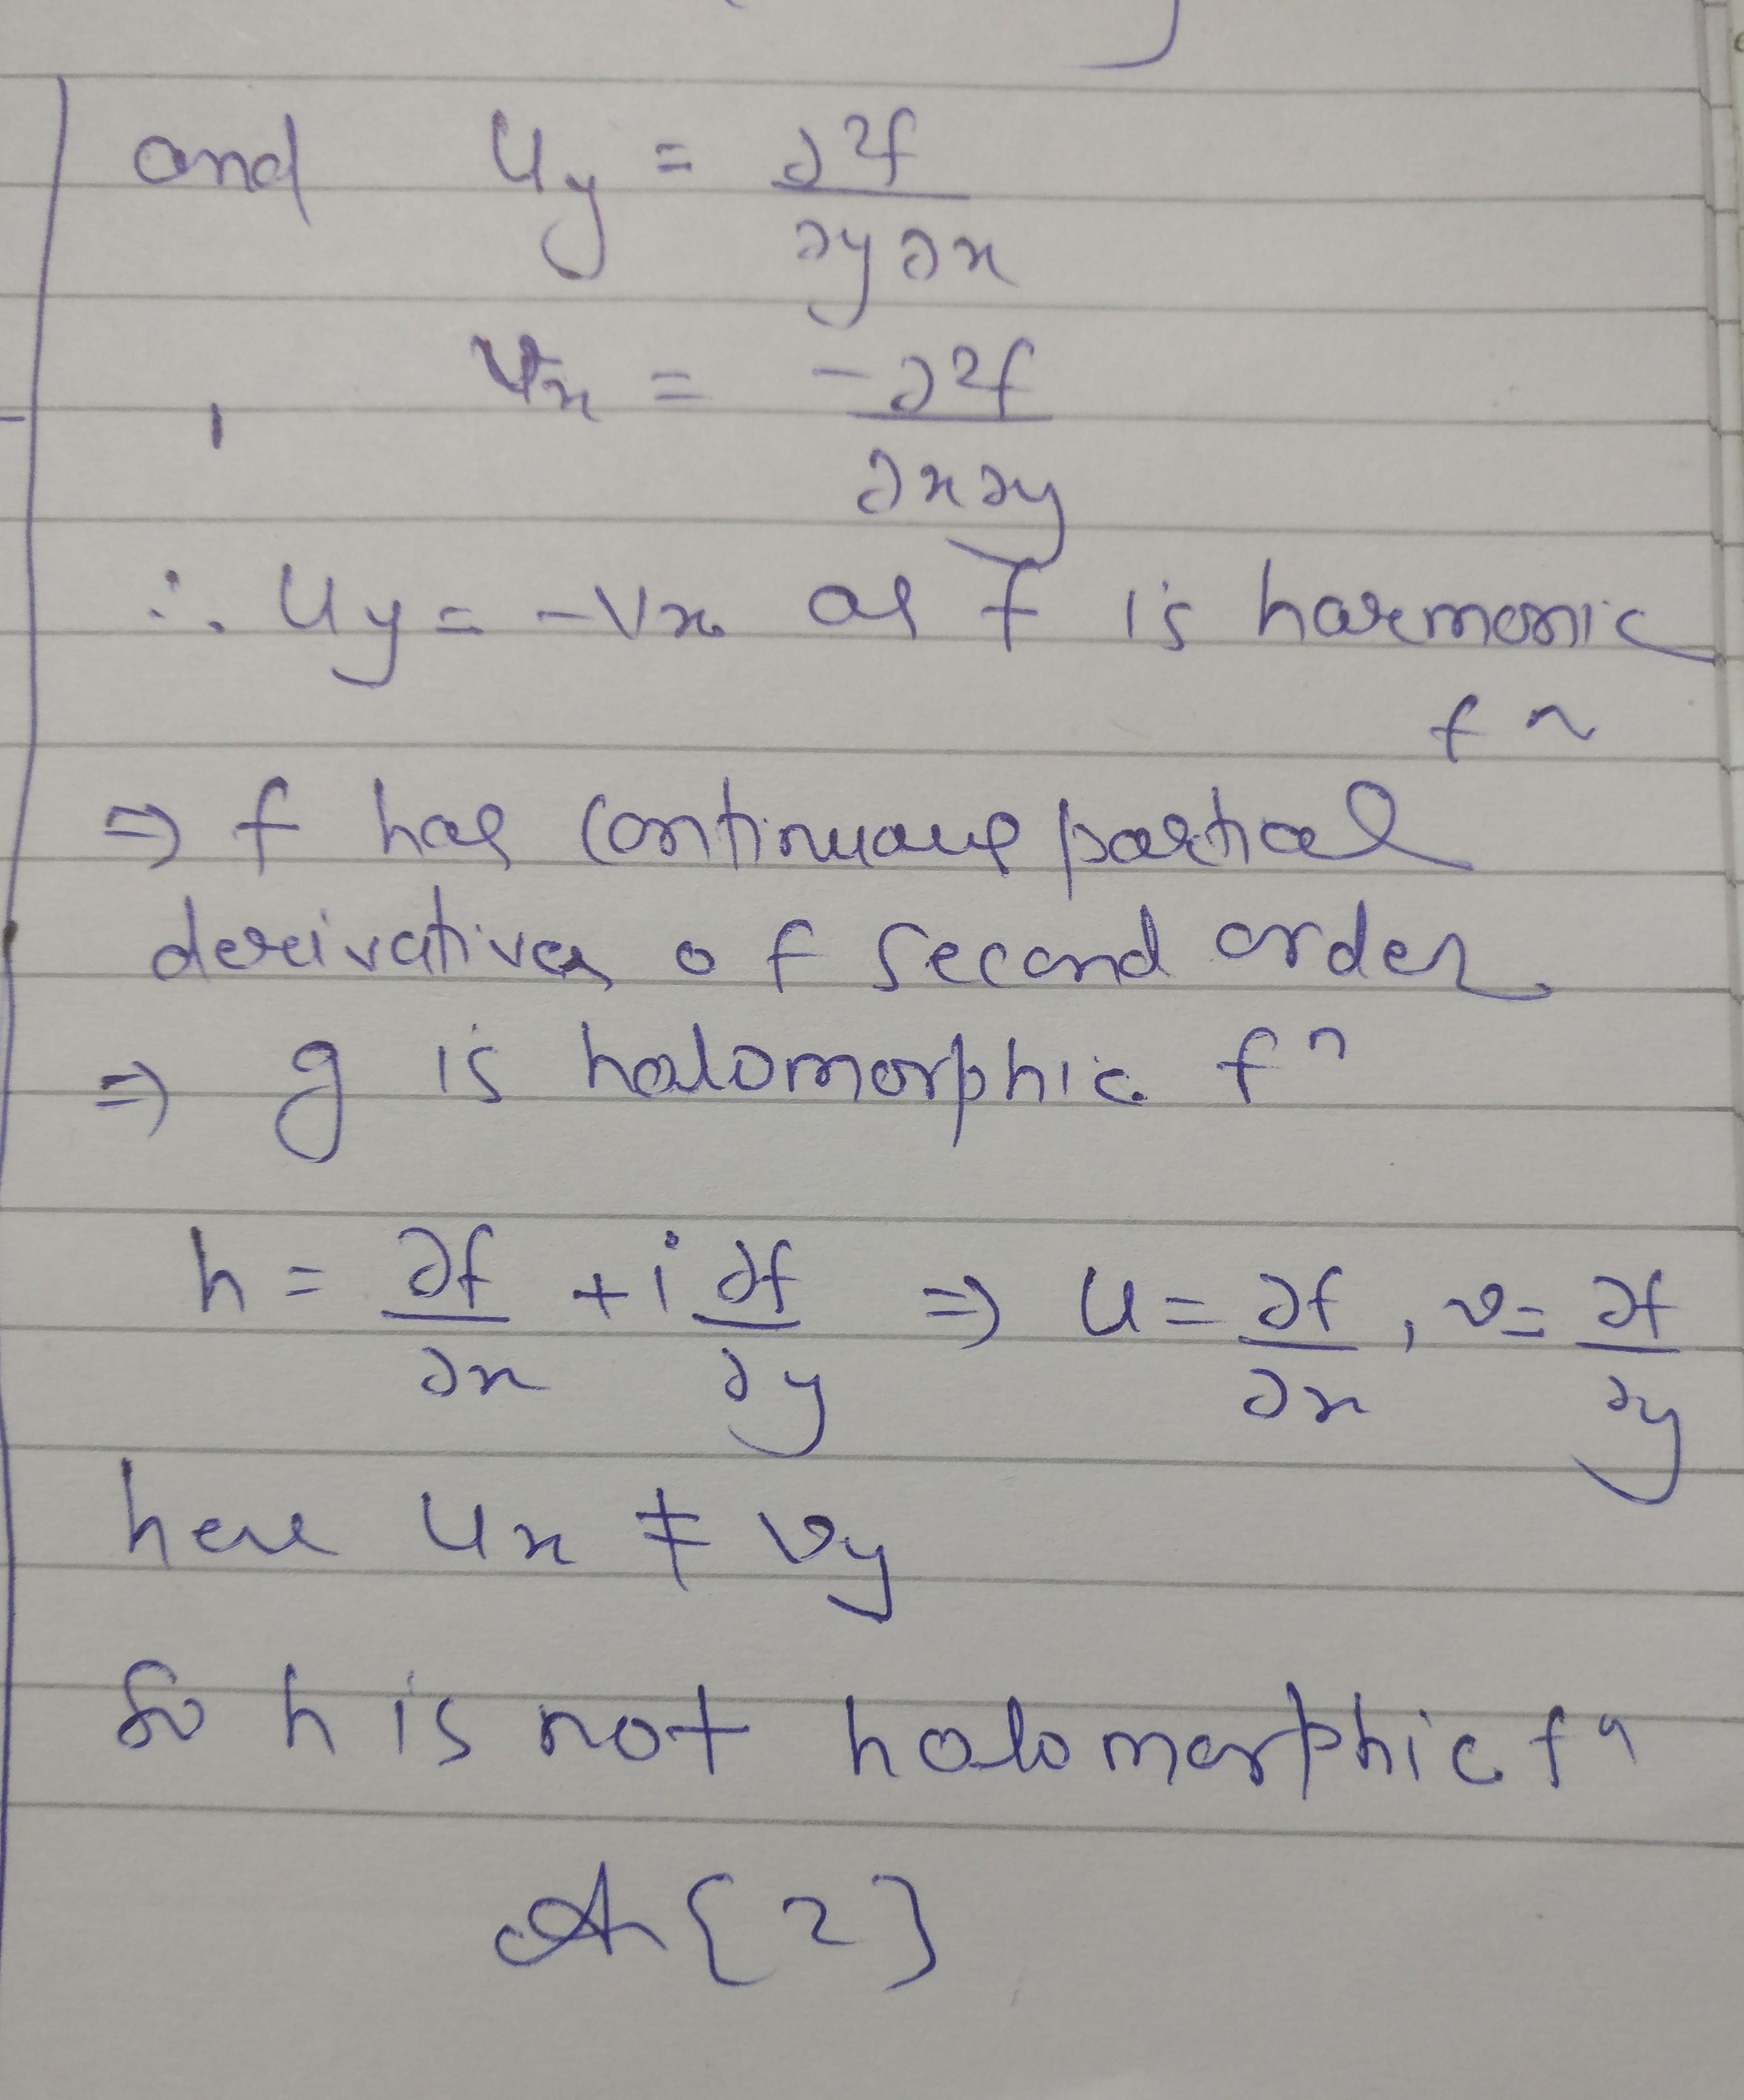 and u_y = ∂²f / ∂y∂x
, v_x = -∂²f / ∂x∂y
∴ u_y = -v_x as f is harmonic
fn
⇒ f has continuous partial
derivatives of second order
⇒ g is holomorphic fn
h = ∂f/∂x + i ∂f/∂y ⇒ u = ∂f/∂x , v = ∂f/∂y
here u_x ≠ v_y
So h is not holomorphic fn
A {2}